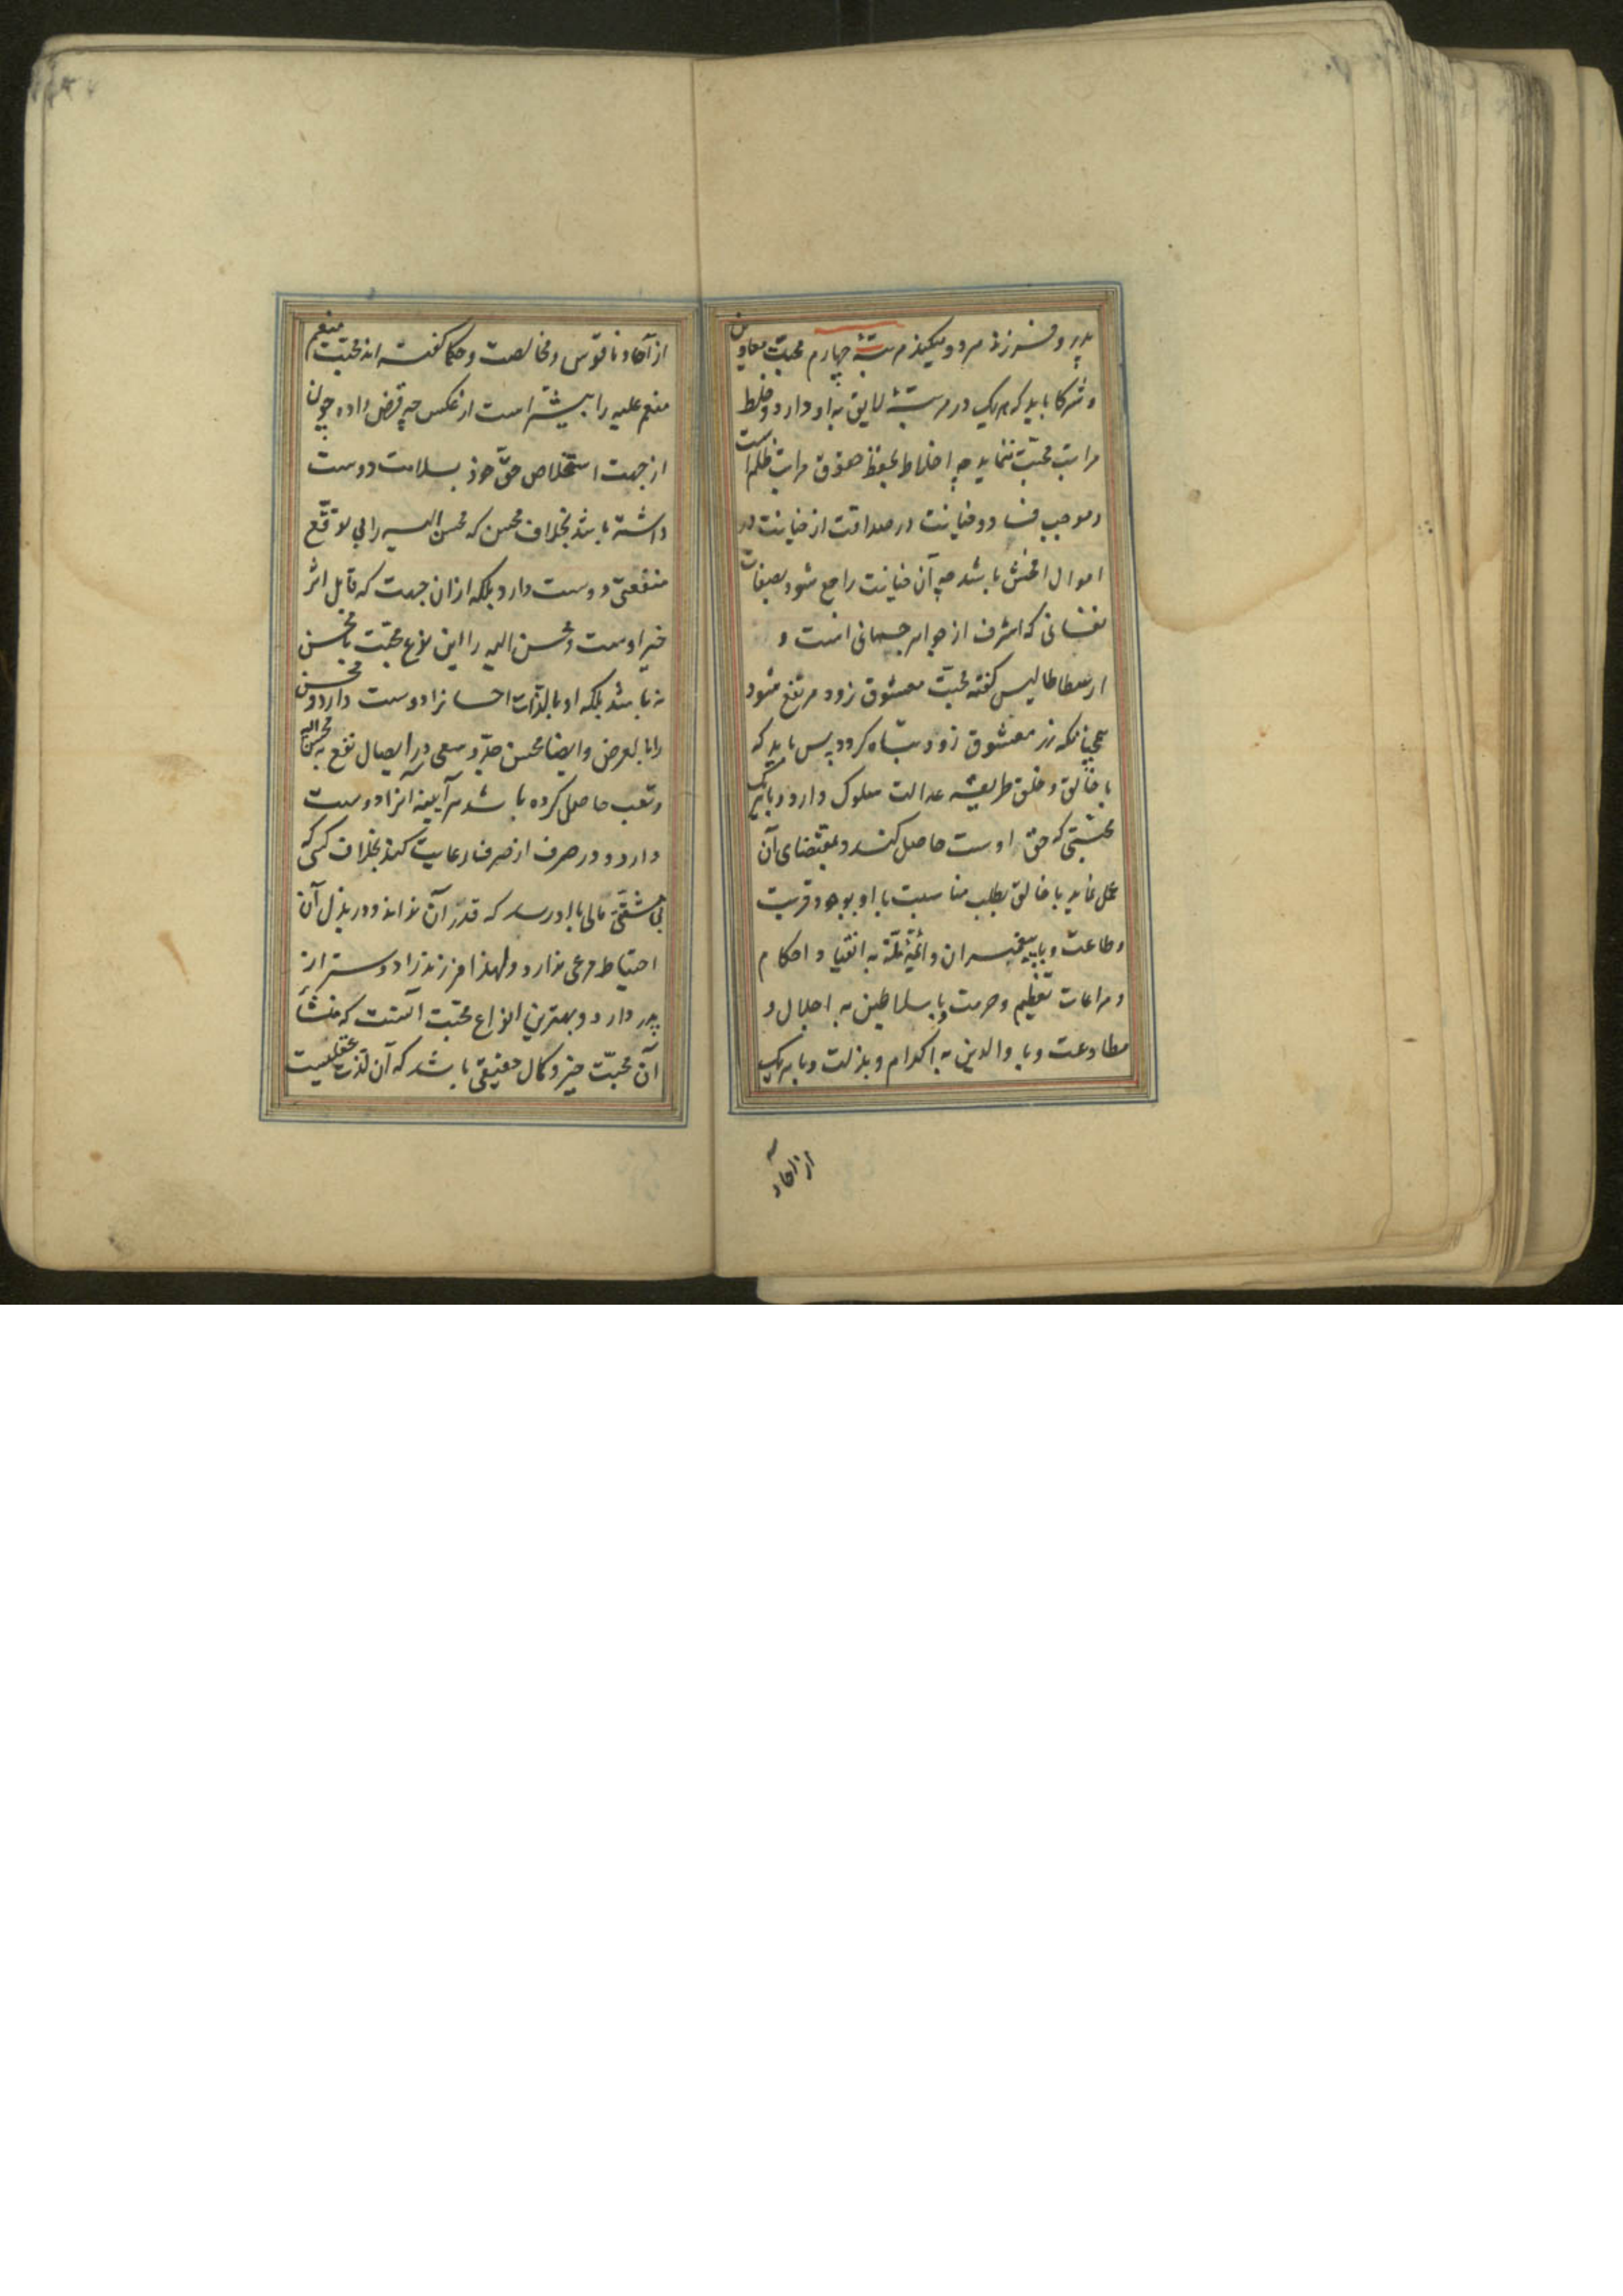 پدر و فرزند مرد و میکیند مرتبهٔ چهارم محبت معاون
و شرکا باید که هر یک در مرتبهٔ لایق به او دارد و خلط
مراتب محبت ننماید چه اخلاط بحفظ حقوق مراتب ظلم است
و موجب فساد و خیانت در صداقت از خیانت در
اموال افحش باشد چه آن خیانت راجع شود بصفات
نفسانی که اشرف از جواهر جسمانی است و
ارسطاطالیس گفته محبت معشوق زود مرتفع شود
همچنانکه زر مغشوق زود تباه کردد پس باید که
با خالق و خلق طریقه عدالت سلوک دارد و با هر یک
محبتی که حق اوست حاصل کند و بمقتضای آن
عمل نماید با خالق بطلب مناسبت با او بوجود قربت
و طاعت و با پیغمبران و ائمه به انقیاد احکام
و مراعات تعظیم و حرمت و با سلاطین به اجلال و
مطاوعت و با والدین به اکرام و بذلت و با هر یک
از آحاد
از آحاد ناقوس و مخالصت و حکما گفته اند محبت منعم
منعم علیه را بیشتر است از عکس چه قرض داده چون
از جهت استخلاص حق خود بسلامت دوست
داشته باشد بخلاف محسن که محسن الیه را بی توقع
منفعتی دوست دارد بلکه از ان جهت که قابل اثر
خیر اوست و محسن الیه را این نوع محبت با محسن
نباشد بلکه او بالذات احسانرا دوست دارد و محسن
را بالعرض و ایضا محسن جد و سعی در ایصال نفع به محسن الیه
و تعب حاصل کرده باشد هر آیینه انرا دوست
دارد و در صرف از صرفنا رعایت کند بخلاف کسی که
بی مشقتی مالی باو رسد که قدر آن نداند و در بذل آن
احتیاط مرعی ندارد و لهذا فرزند را دوستر از
پدر دارد و بهترین انواع محبت آنست که منشأ
آن محبت خیر و کمال حقیقی باشد که آن لذت عقلیست